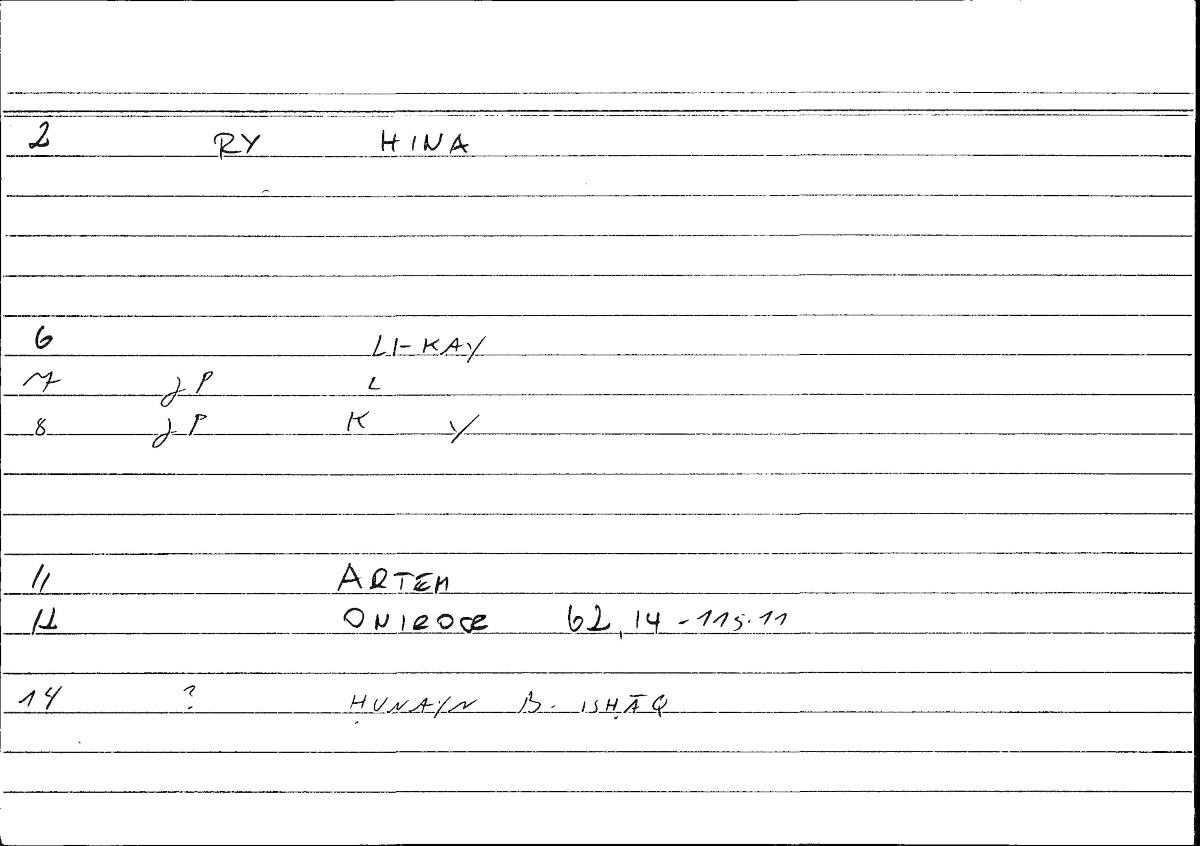 2 RY HINA
6 LI-KAY
7 JP L
8 JP K Y
11 ARTEM
12 ONIROCR 62,14-115.11
14 ? ḤUNAYN B. ISḤĀQ